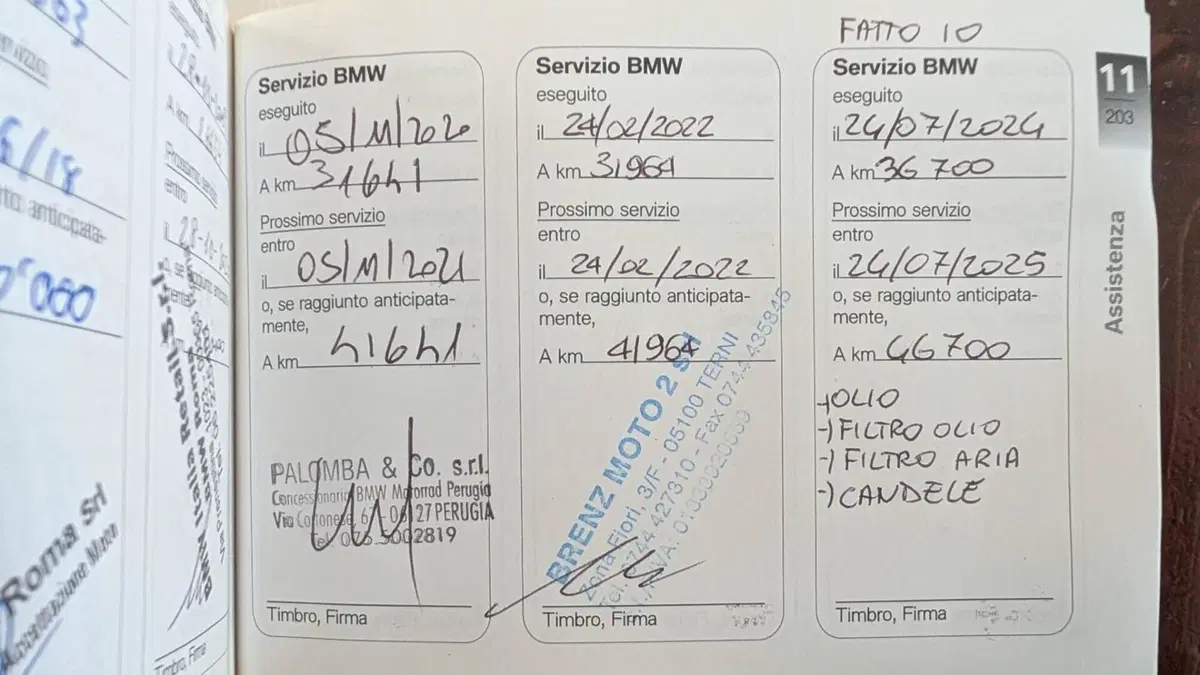 6/18
anticipata-
0'000
Roma Srl
Timbro, Firma
Servizio BMW
eseguito
il 05/11/2020
A km 31641
Prossimo servizio
entro
il 05/11/2021
o, se raggiunto anticipata-
mente,
A km 41641
PALOMBA & Co. s.r.l.
Concessionaria BMW Motorrad Perugia
06127 PERUGIA
Timbro, Firma
Servizio BMW
eseguito
il 24/02/2022
A km 31964
Prossimo servizio
entro
il 24/02/2022
o, se raggiunto anticipata-
mente,
A km 41964
BRENZ MOTO 2 srl
Zona Fiori, 3/F - 05100 TERNI
Tel. 0744 427310 - Fax 0744 435845
Timbro, Firma
FATTO IO
Servizio BMW
eseguito
il 24/07/2024
A km 36700
Prossimo servizio
entro
il 24/07/2025
o, se raggiunto anticipata-
mente,
A km 46700
-) OLIO
-) FILTRO OLIO
-) FILTRO ARIA
-) CANDELE
Timbro, Firma
11
203
Assistenza